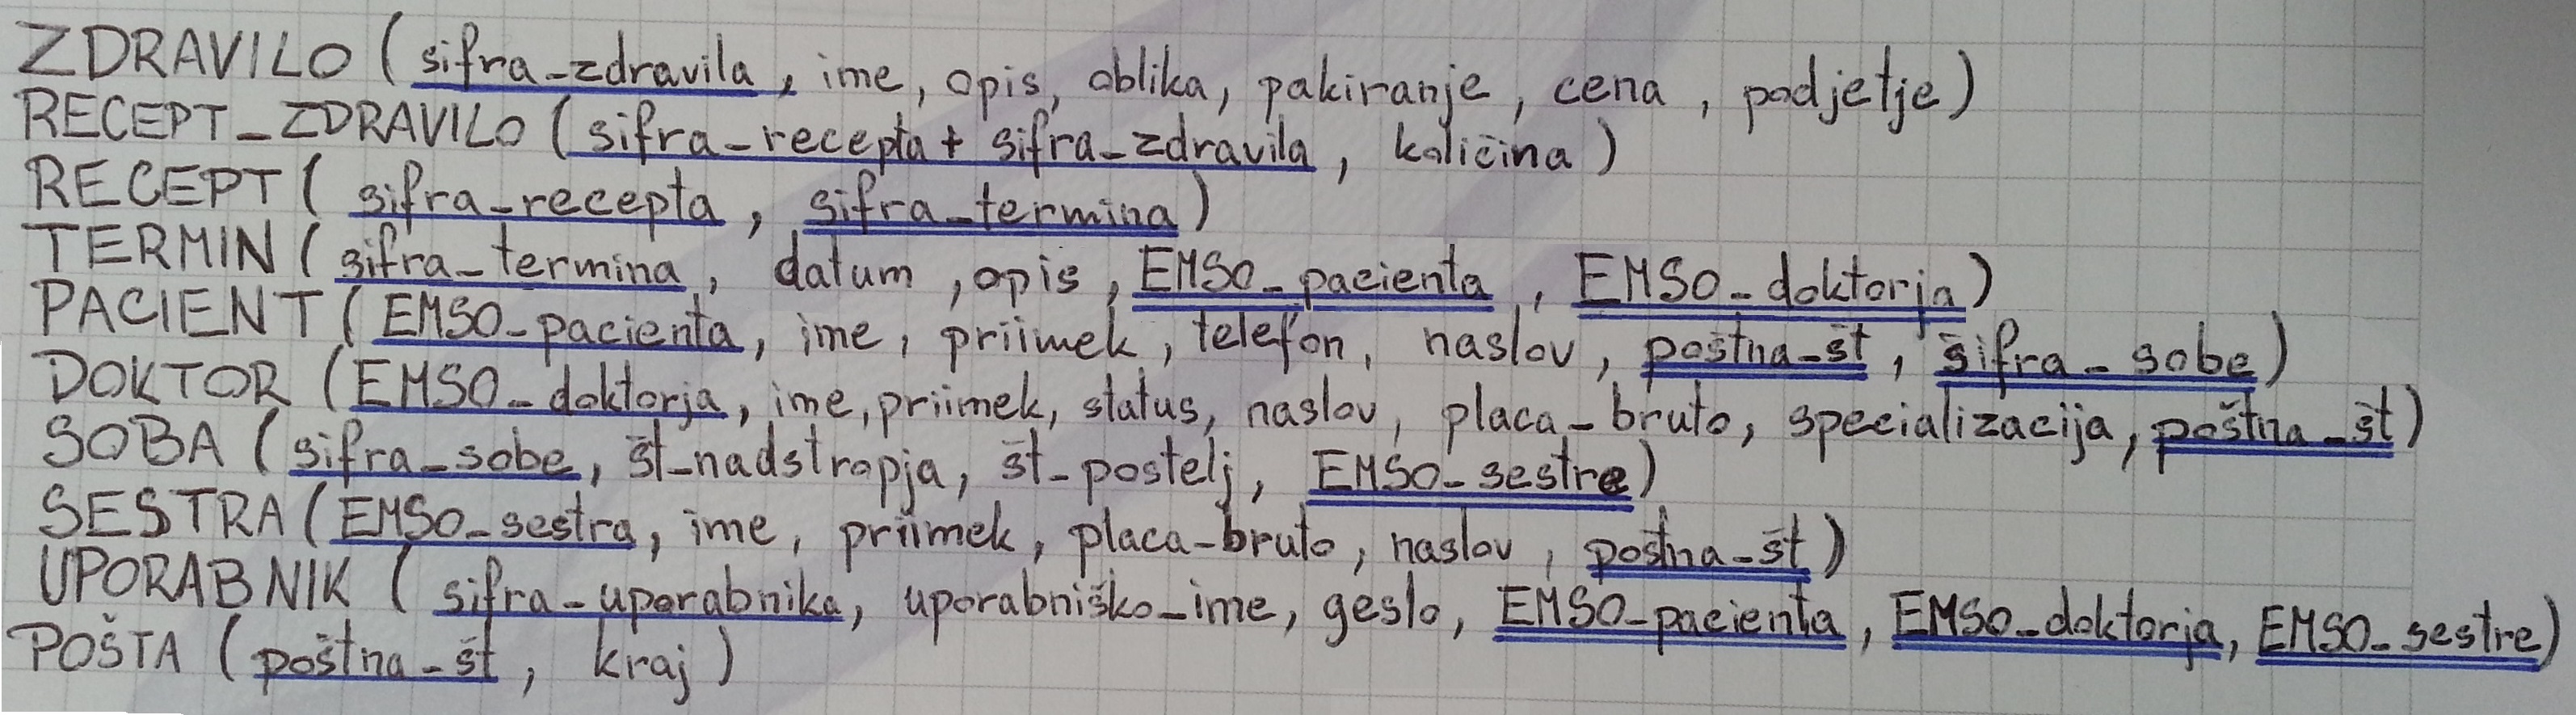 ZDRAVILO (sifra_zdravila, ime, opis, oblika, pakiranje, cena, podjetje)
RECEPT_ZDRAVILO (sifra_recepta + sifra_zdravila, količina)
RECEPT (sifra_recepta, sifra_termina)
TERMIN (sifra_termina, datum, opis, EMSO_pacienta, EMSO_doktorja)
PACIENT (EMSO_pacienta, ime, priimek, telefon, naslov, poštna_št, šifra_sobe)
DOKTOR (EMSO_doktorja, ime, priimek, status, naslov, placa_bruto, specializacija, poštna_št)
SOBA (sifra_sobe, št_nadstropja, št_postelj, EMSO_sestre)
SESTRA (EMSO_sestra, ime, priimek, placa_bruto, naslov, poštna_št)
UPORABNIK (sifra_uporabnika, uporabniško_ime, geslo, EMSO_pacienta, EMSO_doktorja, EMSO_sestre)
POŠTA (poštna_št, kraj)